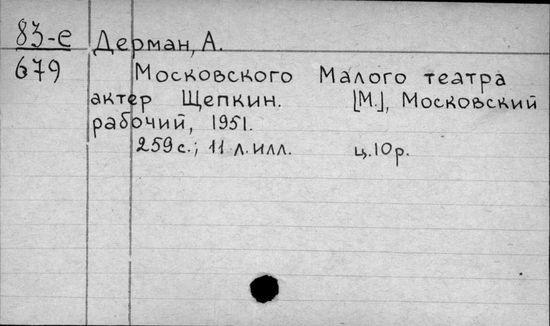 83-е Дерман, А.
679 Московского Малого театра
актер Щепкин. [М.], Московский
рабочий, 1951.
259 с.; 11 л. илл. ц. 10 р.